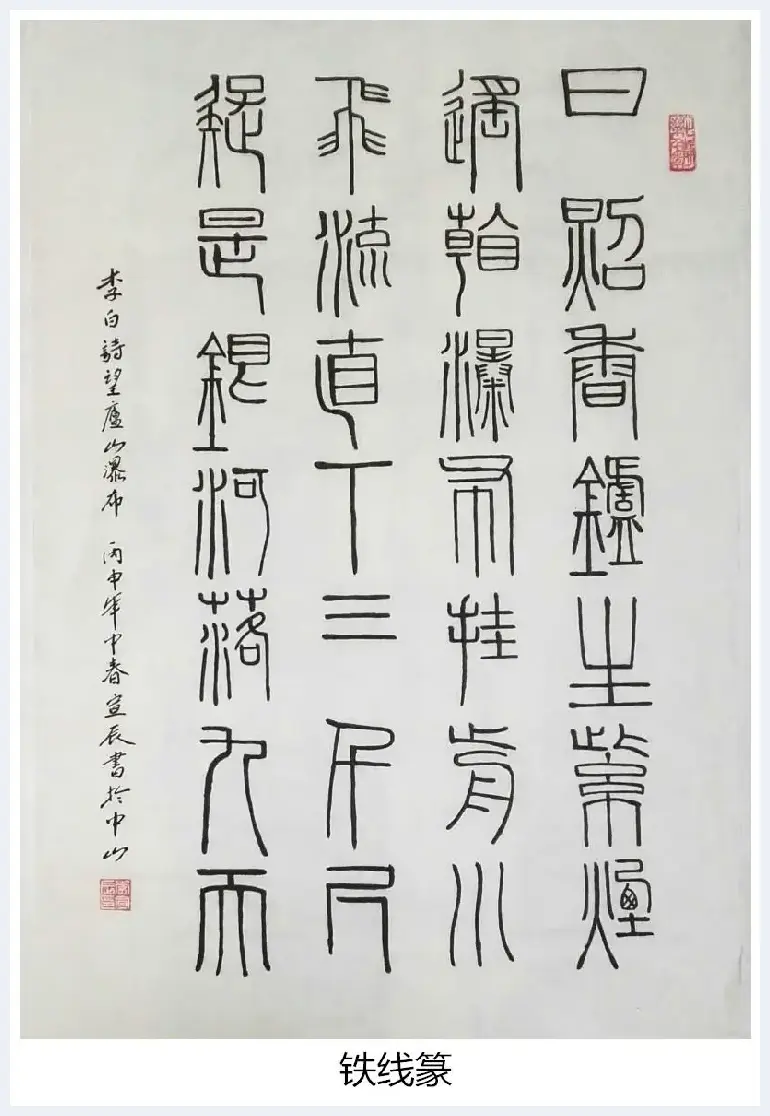 日照香鑪生紫煙
遙看瀑布挂前川
飛流直下三千尺
疑是銀河落九天
李白詩望廬山瀑布 丙申年中春宣辰書於中山
铁线篆